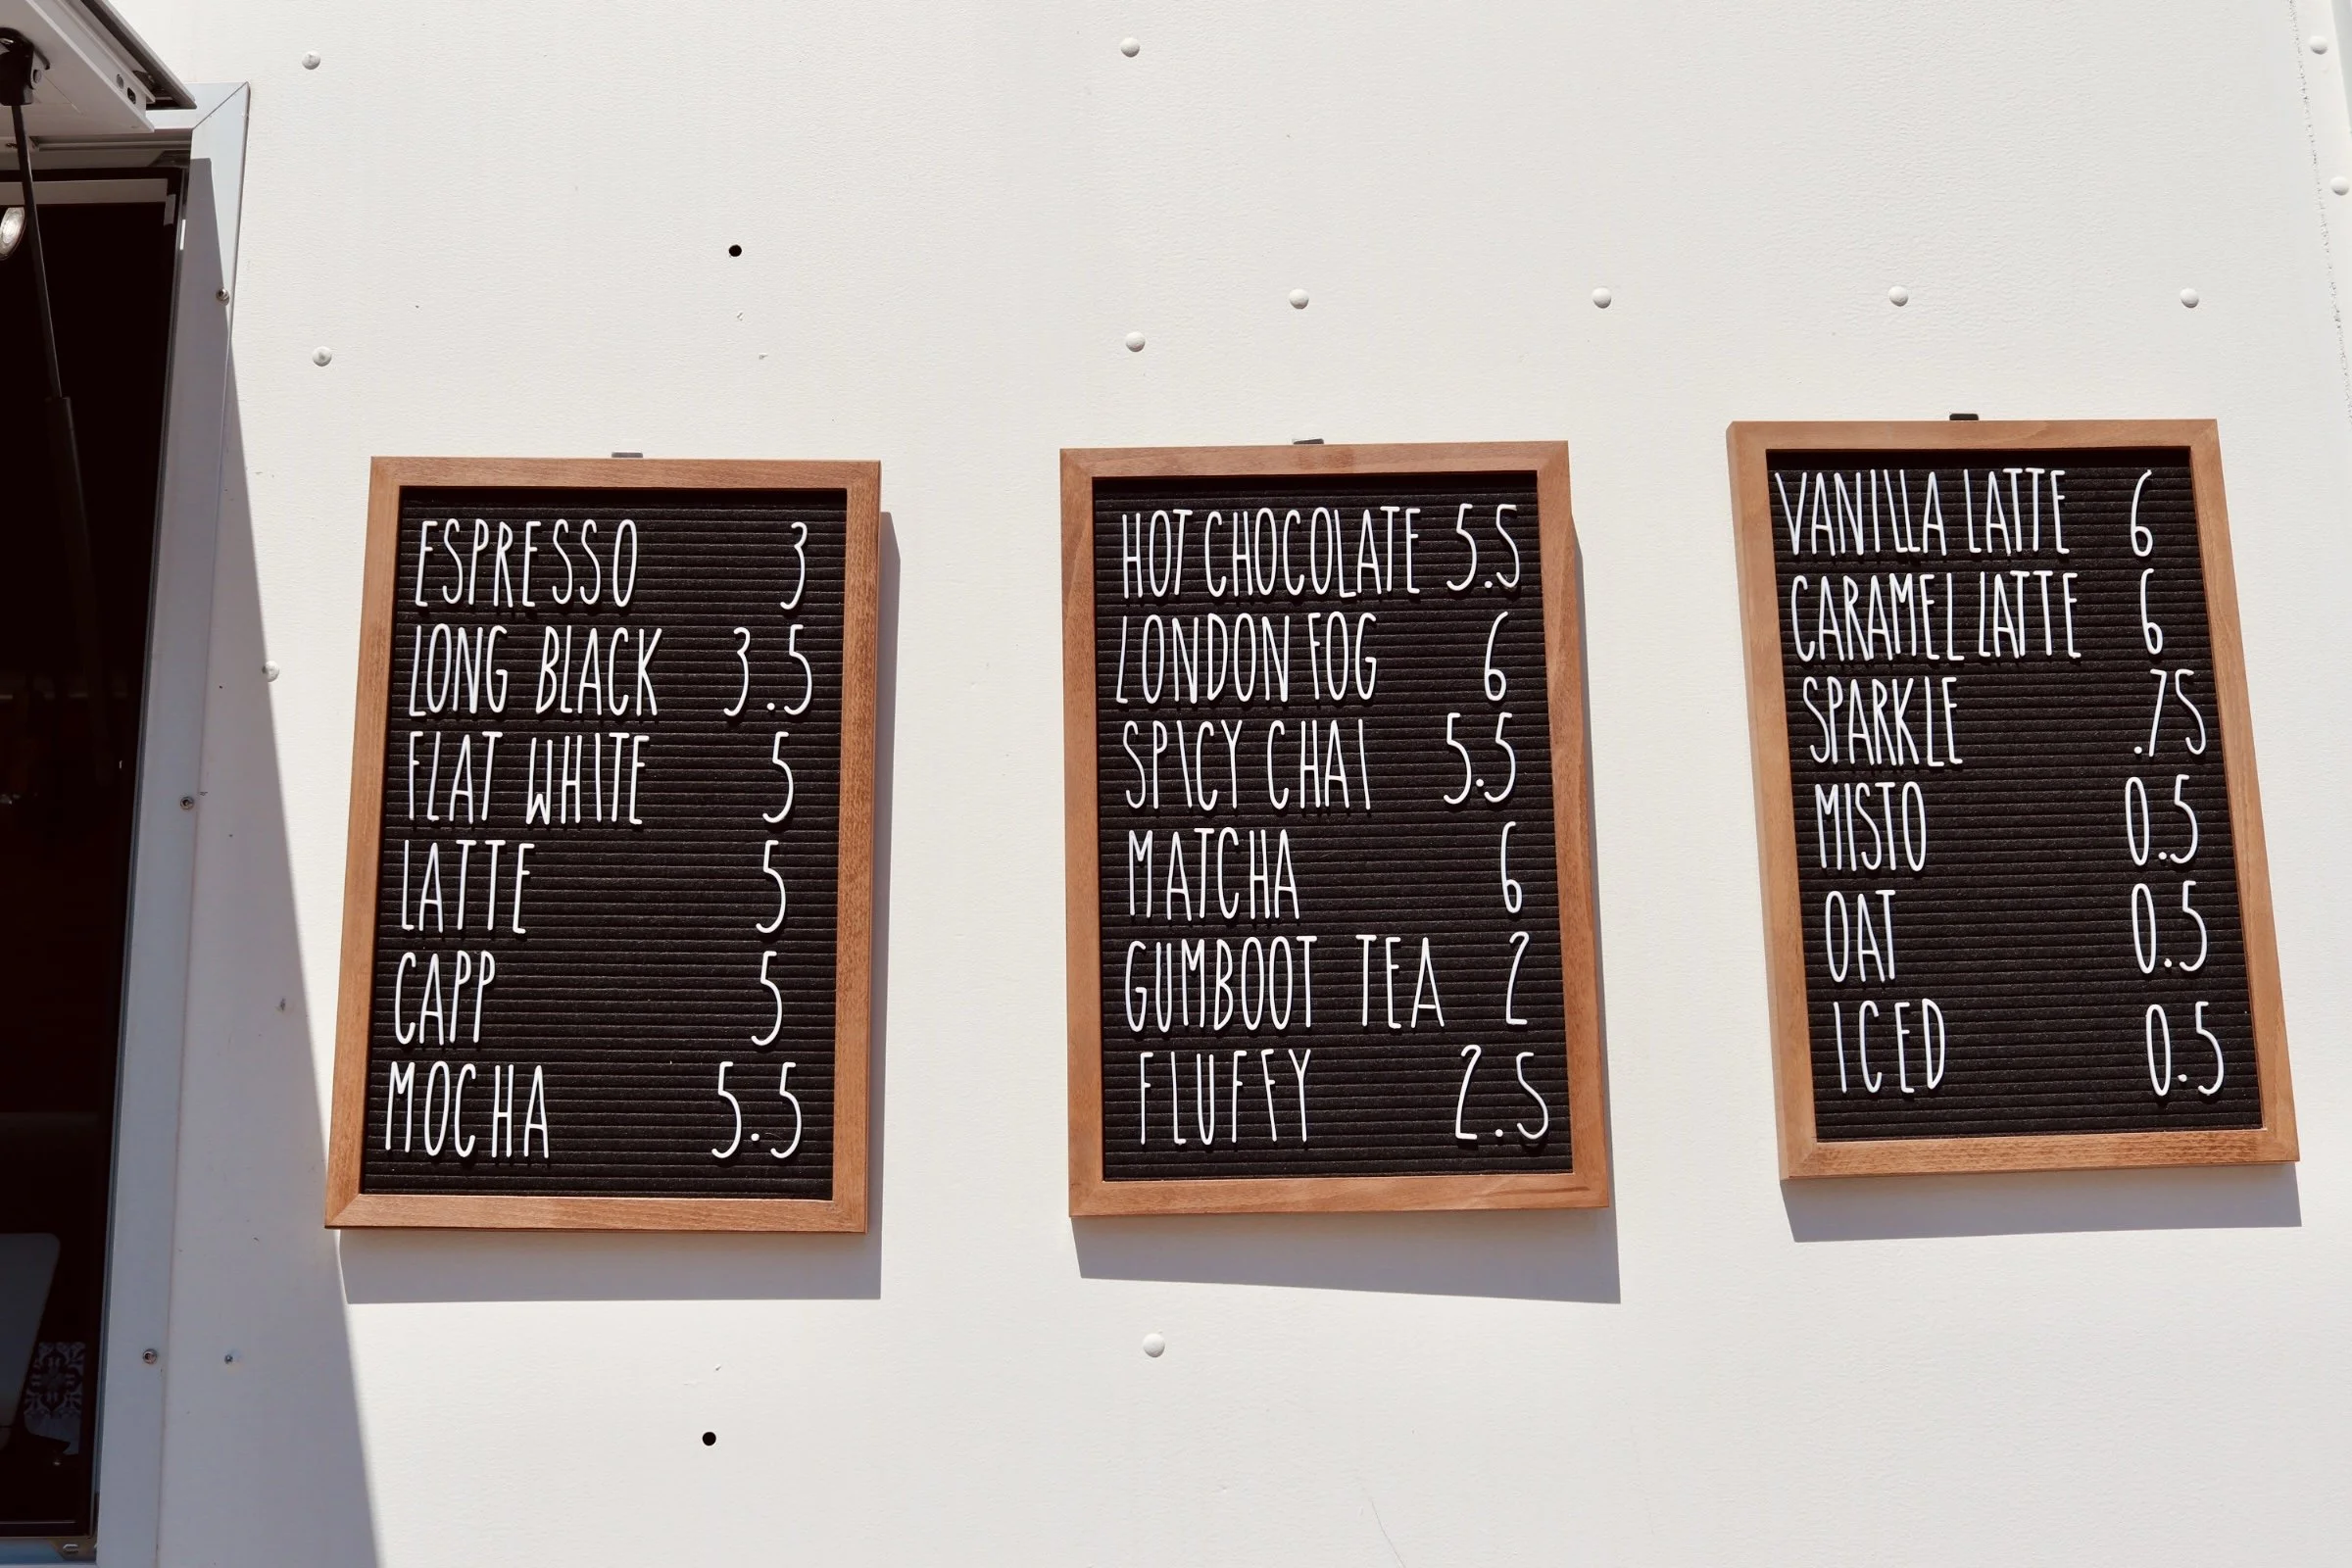 ESPRESSO 3
LONG BLACK 3.5
FLAT WHITE 5
LATTE 5
CAPP 5
MOCHA 5.5
HOT CHOCOLATE 5.5
LONDON FOG 6
SPICY CHAI 5.5
MATCHA 6
GUMBOOT TEA 2
FLUFFY 2.5
VANILLA LATTE 6
CARAMEL LATTE 6
SPARKLE .75
MISTO 0.5
OAT 0.5
ICED 0.5